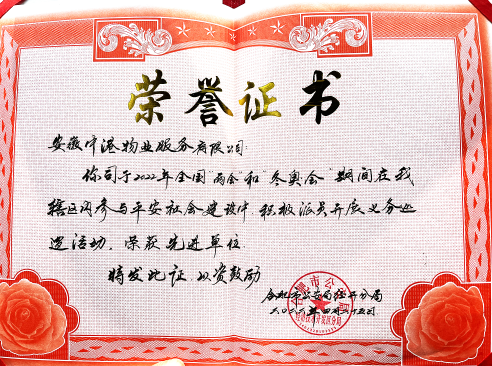 荣誉证书
安徽中港物业服务有限公司:
你司于2022年全国"两会"和"冬奥会"期间在我
辖区内参与平安社会建设中,积极派员开展义务巡
逻活动,荣获先进单位.
特发此证,以资鼓励
合肥市公安局经开分局
二〇二二年四月二十五日